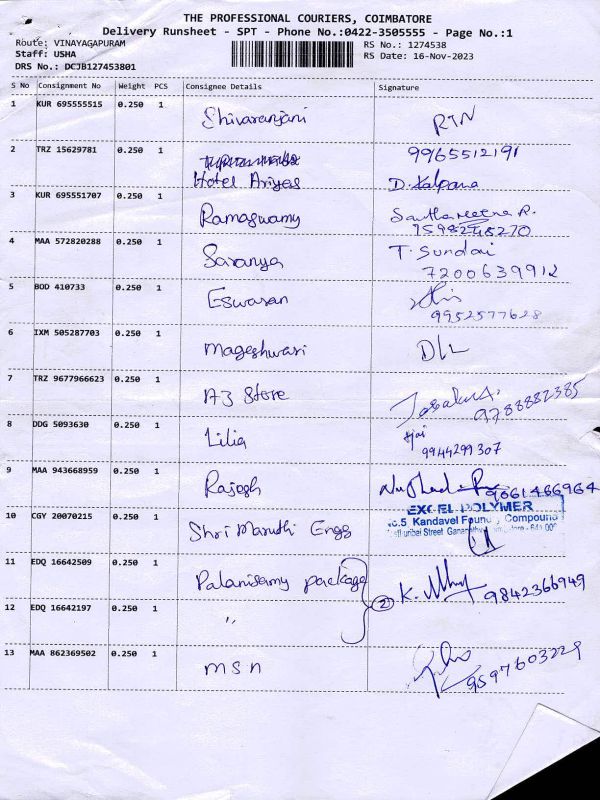 THE PROFESSIONAL COURIERS, COIMBATORE
Delivery Runsheet - SPT - Phone No.:0422-3505555 - Page No.:1
Route: VINAYAGAPURAM
Staff: USHA
DRS No.: DCJB127453801
RS No.: 1274538
RS Date: 16-Nov-2023
S No Consignment No Weight PCS Consignee Details Signature
1 KUR 695555515 0.250 1 Shivaranjani RTN
2 TRZ 15629781 0.250 1 Hotel Ariyas 9965512191
D. Kalpana
3 KUR 695551707 0.250 1 Ramaswamy
4 MAA 572820288 0.250 1 Saranya T. Sundai
7200639912
5 BOD 410733 0.250 1 Eswaran
9952577628
6 IXM 505287703 0.250 1 Mageshwari D/L
7 TRZ 9677966623 0.250 1 A3 Store
9788882385
8 DDG 5093630 0.250 1 Lilia
9944299307
9 MAA 943668959 0.250 1 Rajesh
9061466964
10 CGY 20070215 0.250 1 Shri Maruthi Engg
EXCEL POLYMER
No.5 Kandavel Foundry Compound
11 EDQ 16642509 0.250 1 Palanisamy package
12 EDQ 16642197 0.250 1 "
2 K. 9842366949
13 MAA 862369502 0.250 1 msn
9597603229